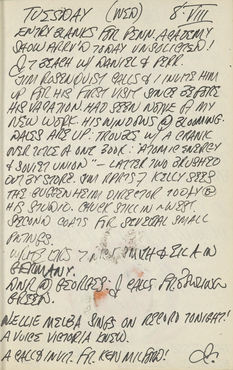 TUESDAY (WED) 8·VIII
ENTRY BLANKS FOR PENN. ACADEMY
SHOW ARRV'D TODAY UNSOLICITED!
TO BEACH W/ DANIEL & PERR.
JIM ROSENQUIST CALLS & I INVITE HIM
UP FOR HIS FIRST VISIT SINCE BEFORE
HIS VACATION. HAD SEEN NONE OF MY
NEW WORK. HIS WINDOWS @ BLOOMING-
DALES ARE UP. TROUBLE W/ A CRANK
OVER THE ONE BOOK: "ATOMIC ENERGY
& SOVIET UNION" — LATTER TWO BRUSHED
OUT BY STORE. JIM KELLY SEES
THE GUGGENHEIM DIRECTOR TODAY @
HIS STUDIO. STILL IN
SECOND COATS FOR SEVERAL SMALL
PNTNGS.
SMITH &
GERMANY.
DNR @ GEORGES. CALLS
GREEN.
NELLIE MELBA SINGS ON RECORD TONIGHT!
A VOICE VICTORIA KNEW.
A CALL & INVIT. FR. KEN